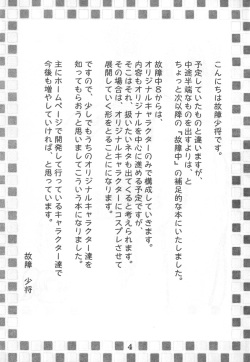 こんにちは故障少将です。
予定していたものと違いますが、
中途半端なものを出すよりは、と
ちょっと次以降の「故障中」の補足的な本にいたしました。
故障中８からは、
オリジナルキャラクターのみで構成していきます。
内容もオリジナルを中心に進める予定ですが、
そこはそれ、扱いたいネタも出てくると考えられます。
その場合は、オリジナルキャラクターにコスプレさせて
展開していく形をとることになります。
ですので、少しでもうちのオリジナルキャラクター達を
知ってもらおうと思いましてこういう本になりました。
主にホームページで開発して行っているキャラクター達で
今後も増やしていければ、と思っています。
故障　少将
4